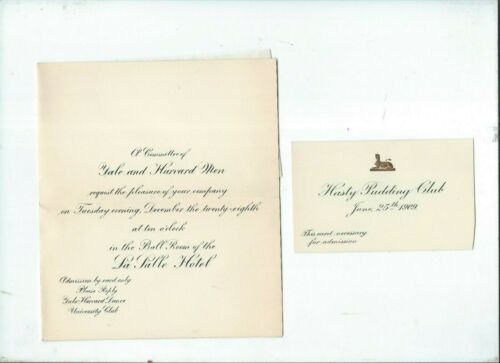 A Committee of
Yale and Harvard Men
request the pleasure of your company
on Tuesday evening, December the twenty-eighth
at ten o'clock
in the Ball Room of the
La Salle Hotel
Admission by card only
Please Reply
Yale-Harvard Dance
University Club
Hasty Pudding Club
June, 25th 1909
This card necessary
for admission